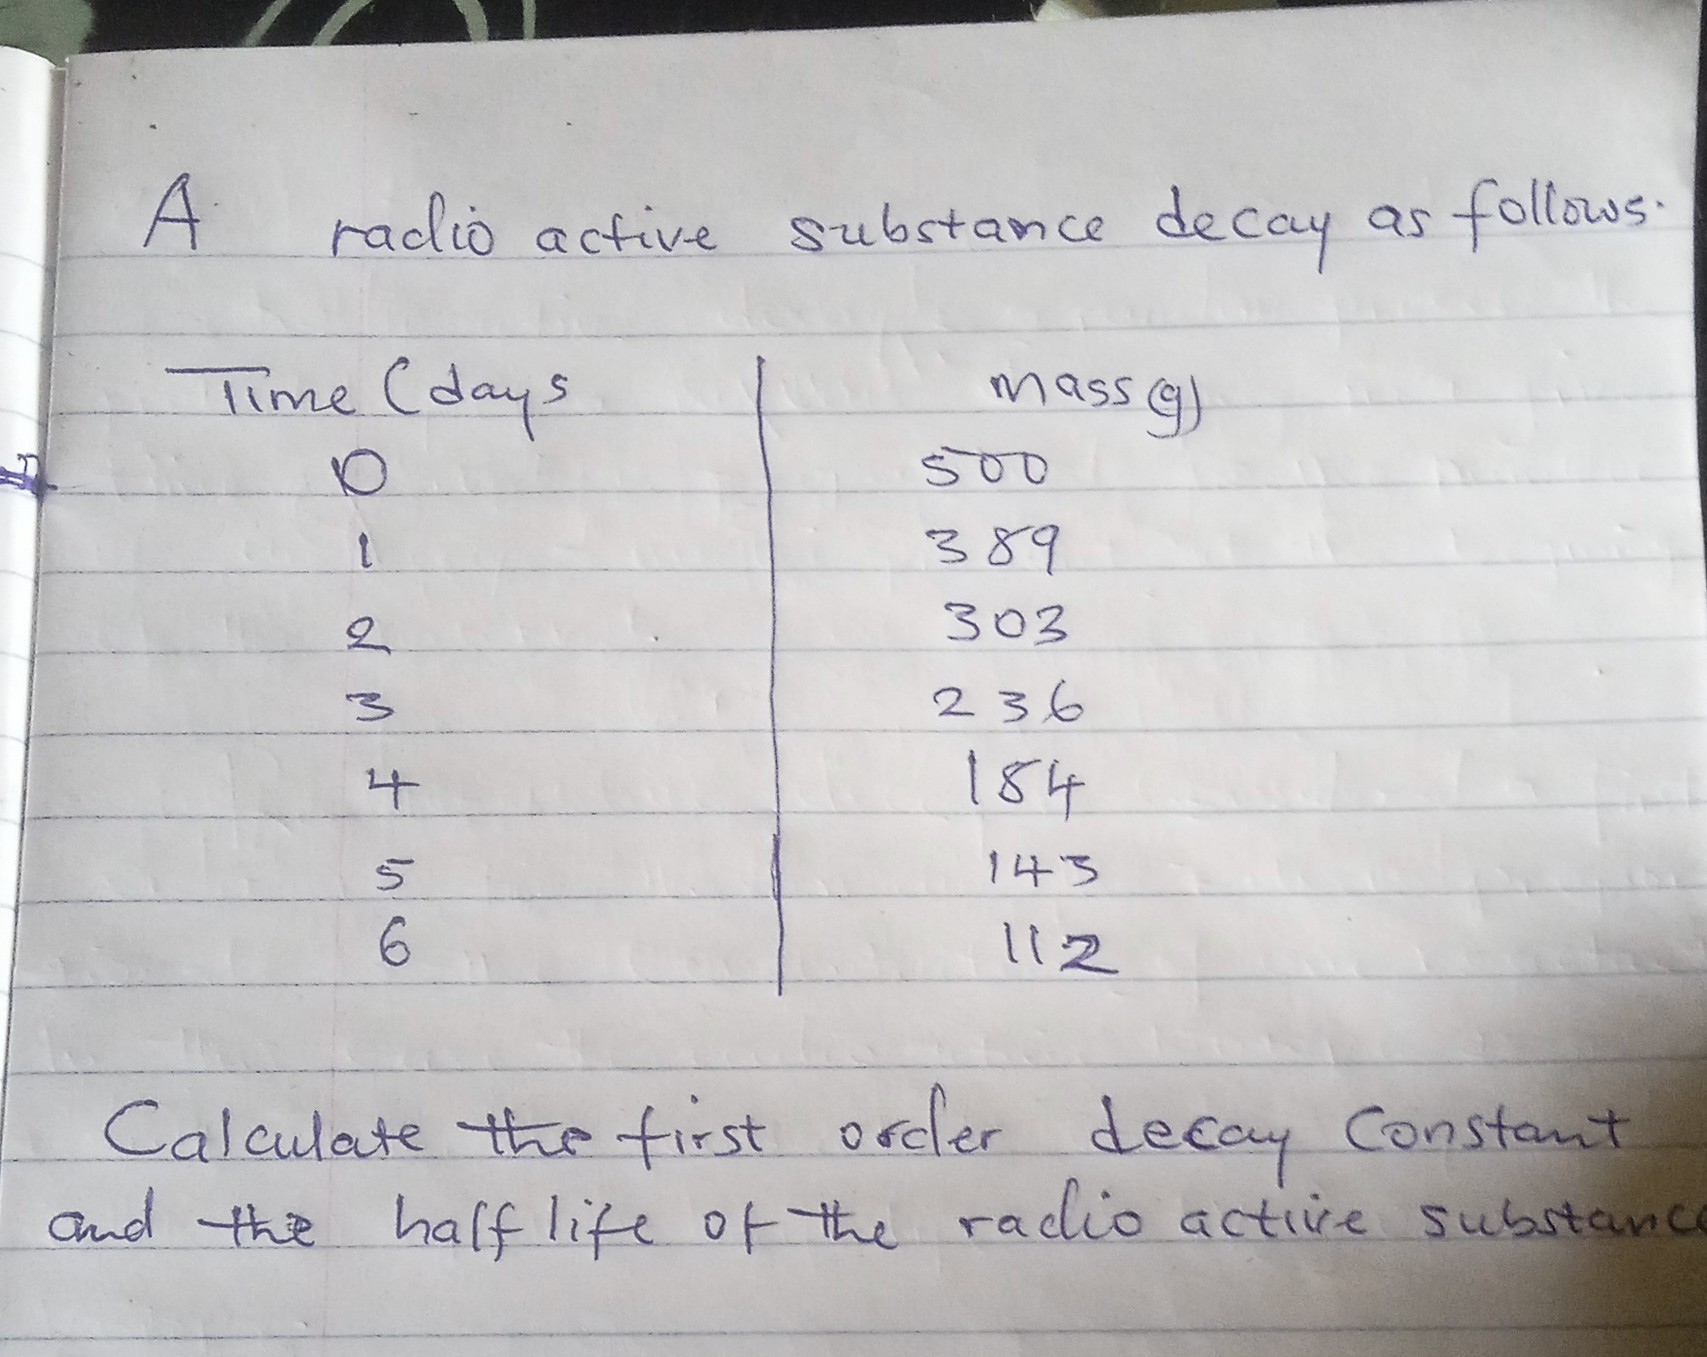 A radio active substance decay as follows.
Time (days mass(g)
0 500
1 389
2 303
3 236
4 184
5 143
6 112
Calculate the first order decay constant
and the half life of the radio active substance